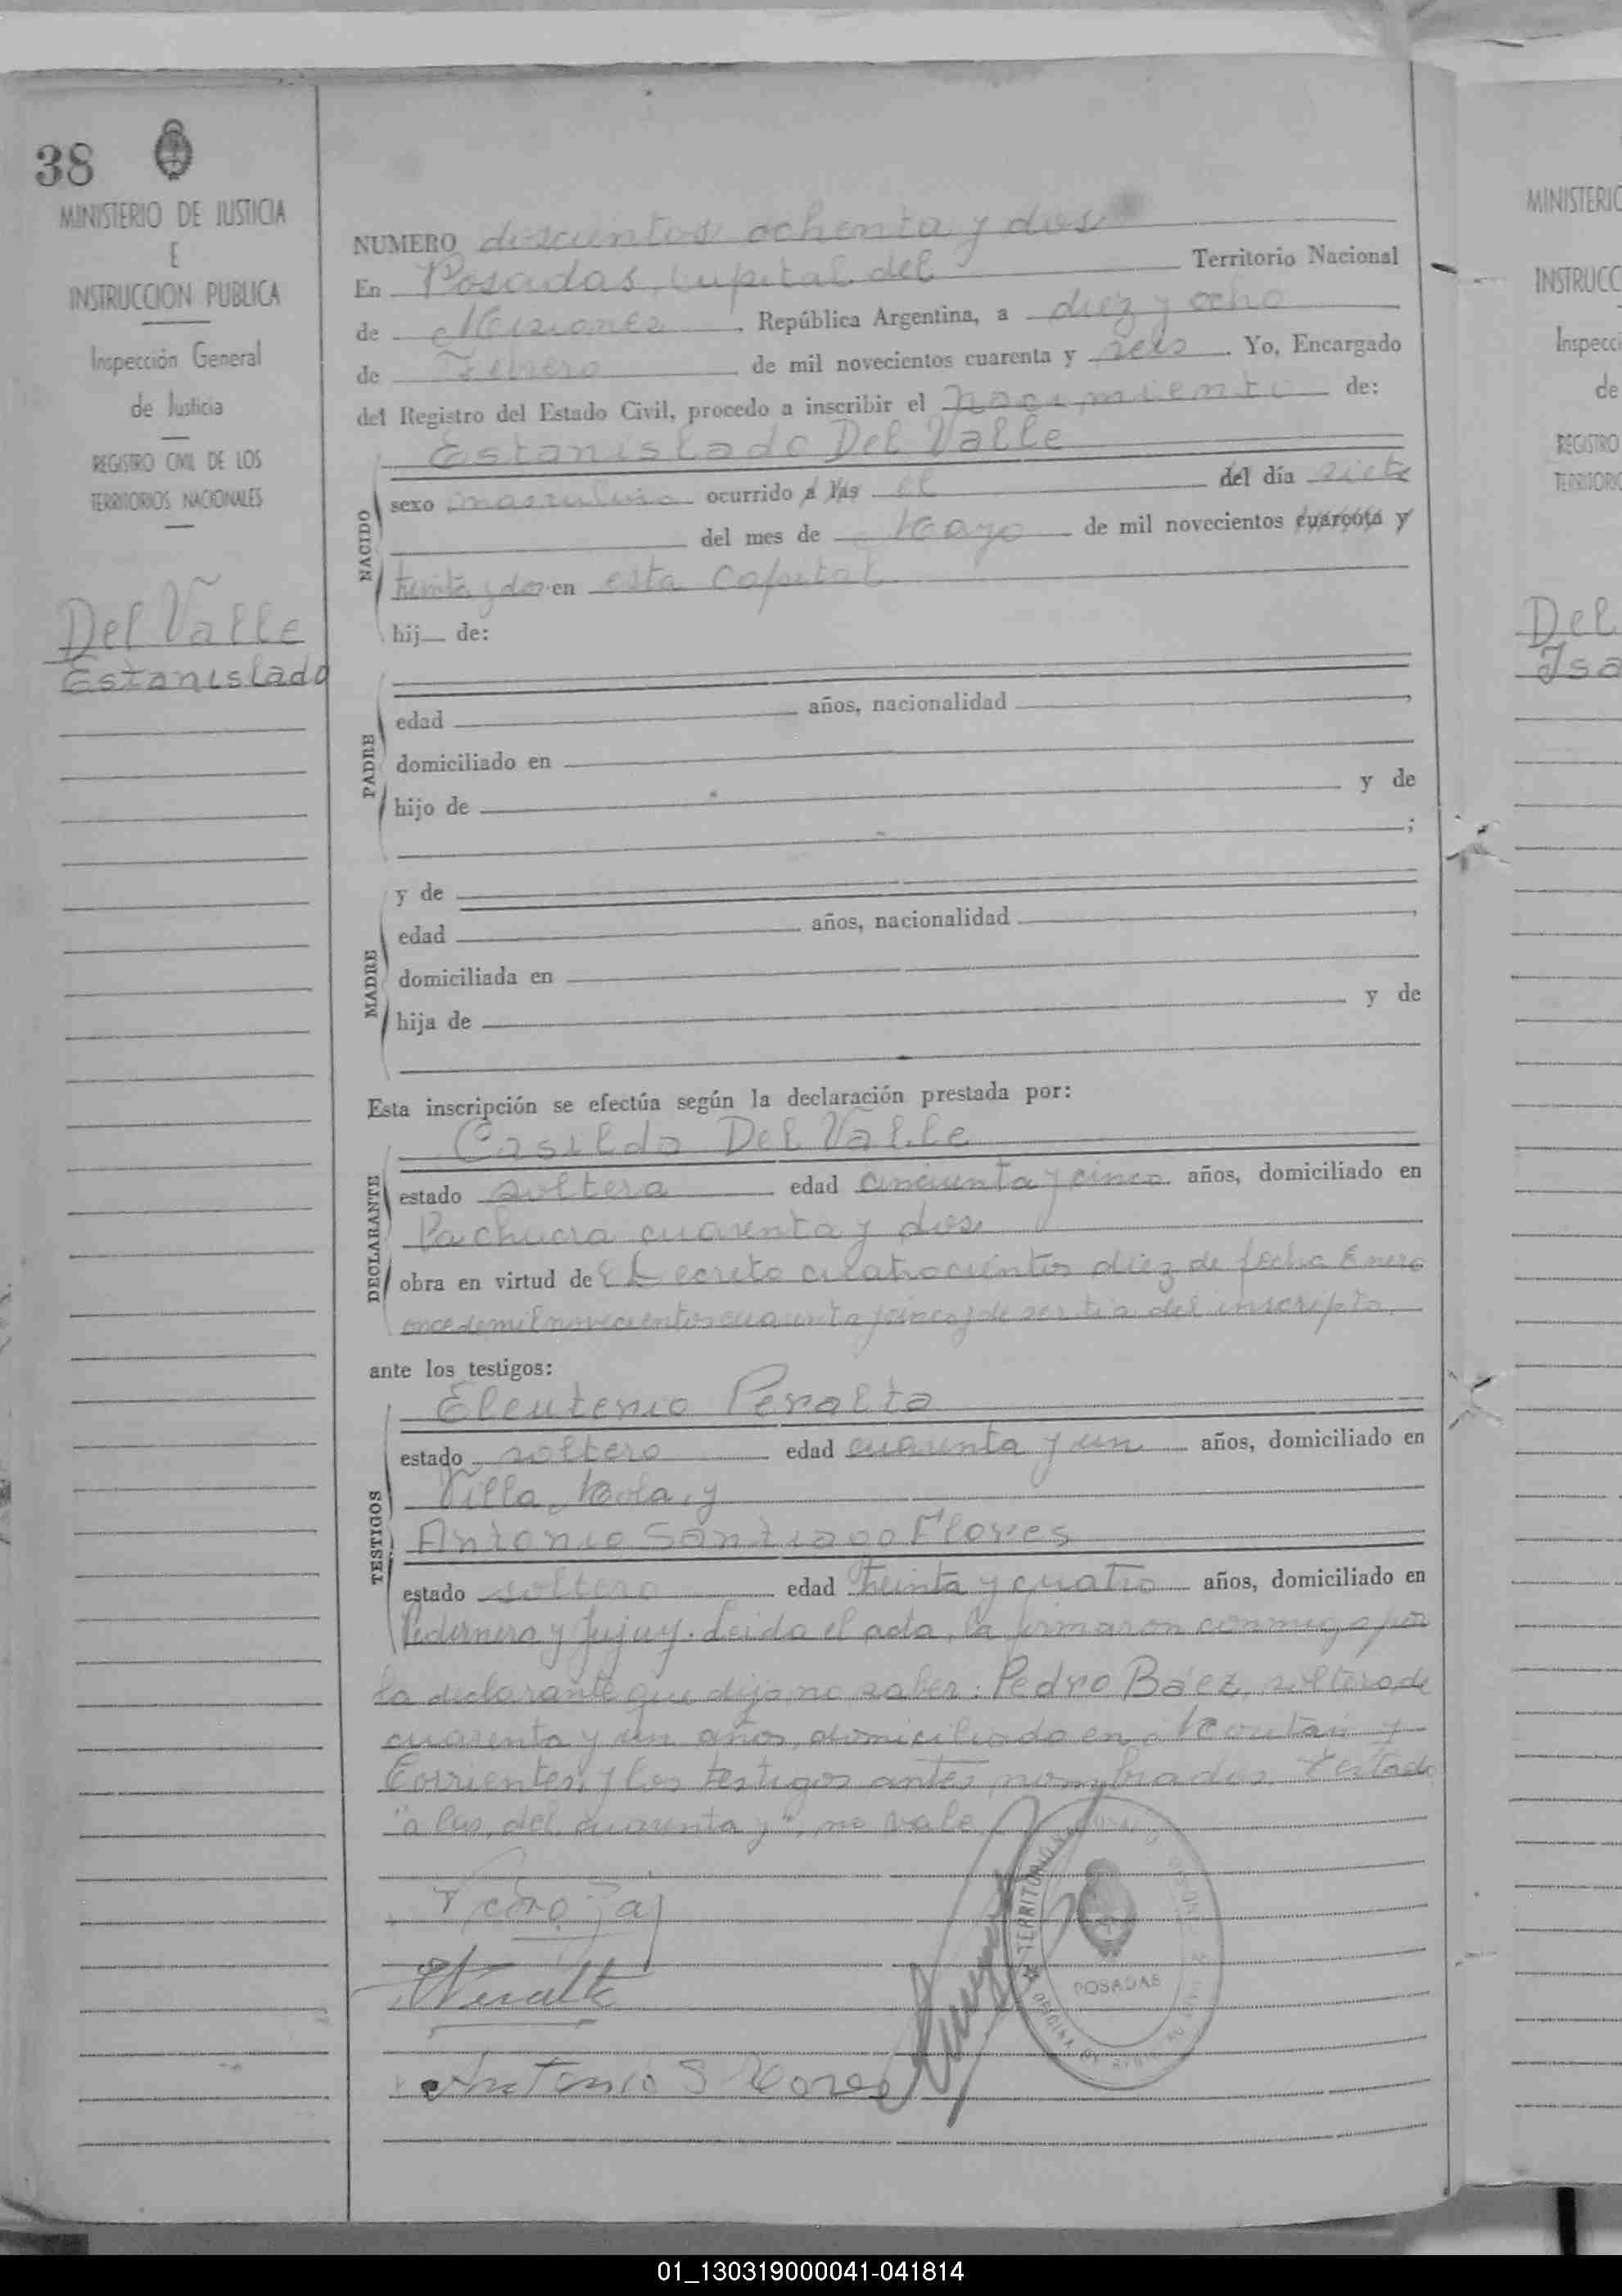 38
MINISTERIO DE JUSTICIA
E
INSTRUCCION PUBLICA
Inspección General
de Justicia
REGISTRO CIVIL DE LOS
TERRITORIOS NACIONALES
Del Valle
Estanislado
NUMERO doscientos ochenta y dos
En Posadas, Capital del Territorio Nacional
de Misiones, República Argentina, a diez y ocho
de Febrero de mil novecientos cuarenta y seis. Yo, Encargado
del Registro del Estado Civil, procedo a inscribir el nacimiento de:
Estanislado Del Valle
NACIDO
sexo masculino ocurrido a las el del día siete
del mes de Mayo de mil novecientos cuarenta y
treinta y dos en esta Capital
hij de:
PADRE
edad años, nacionalidad ,
domiciliado en
hijo de y de
;
MADRE
y de
edad años, nacionalidad ,
domiciliada en
hija de y de
Esta inscripción se efectúa según la declaración prestada por:
DECLARANTE
Casilda Del Valle
estado soltera edad cincuenta y cinco años, domiciliado en
Pachuca cuarenta y dos
obra en virtud de El Decreto cuatrocientos diez de fecha Enero
once de mil novecientos cuarenta y cinco y de ser tia del inscripto.
ante los testigos:
TESTIGOS
Eleuterio Peralta
estado soltero edad cuarenta y un años, domiciliado en
Villa Mola, y
Antonio Santiago Flores
estado soltero edad treinta y cuatro años, domiciliado en
Pedernera y Jujuy. Leida el acta, la firmaron conmigo por
la declarante que dijo no saber: Pedro Báez, soltero, de
cuarenta y un años, domiciliado en y
Corrientes, y los testigos antes nombrados. Testado
"a las, del, cuarenta y", no vale.
Peralta
Antonio S Flores
TERRITORIO
POSADAS
MINISTERIO
INSTRUCC
Inspecci
de
REGISTRO
TERRITORIO
Del
Isa
01_130319000041-041814